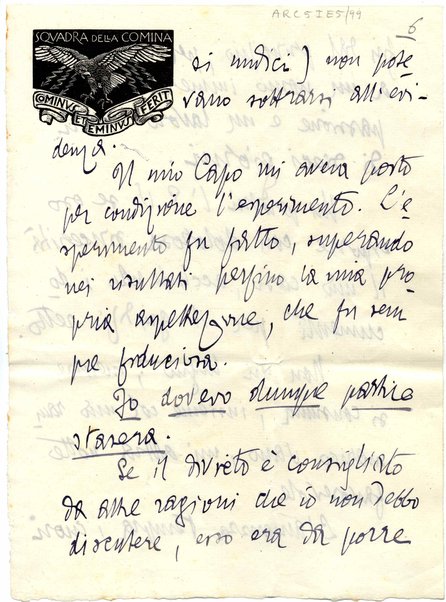 ARC5IE5/99
6
SQVADRA DELLA COMINA
COMINVS ET EMINVS FERIT
si indici) non pote
vano sottrarsi all'evi
denza.
Il mio Capo mi aveva posto
per condizione l'esperimento. L'e
sperimento fu fatto, superando
nei risultati perfino la mia pro
pria aspettazione, che fu sem
pre fiduciosa.
Io dovevo dunque partire
stasera.
Se il divieto è consigliato
da altre ragioni che io non debbo
discutere, esso era da porre